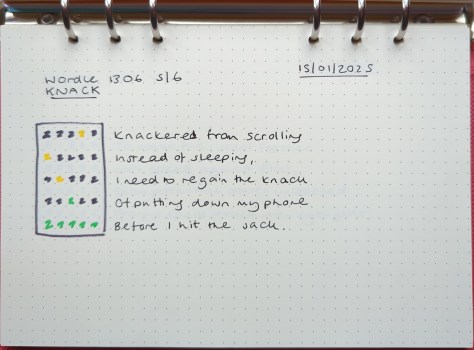 Wordle 1306 5/6
15/01/2025
KNACK
Knackered from scrolling
Instead of sleeping,
I need to regain the knack
Of putting down my phone
Before I hit the sack.